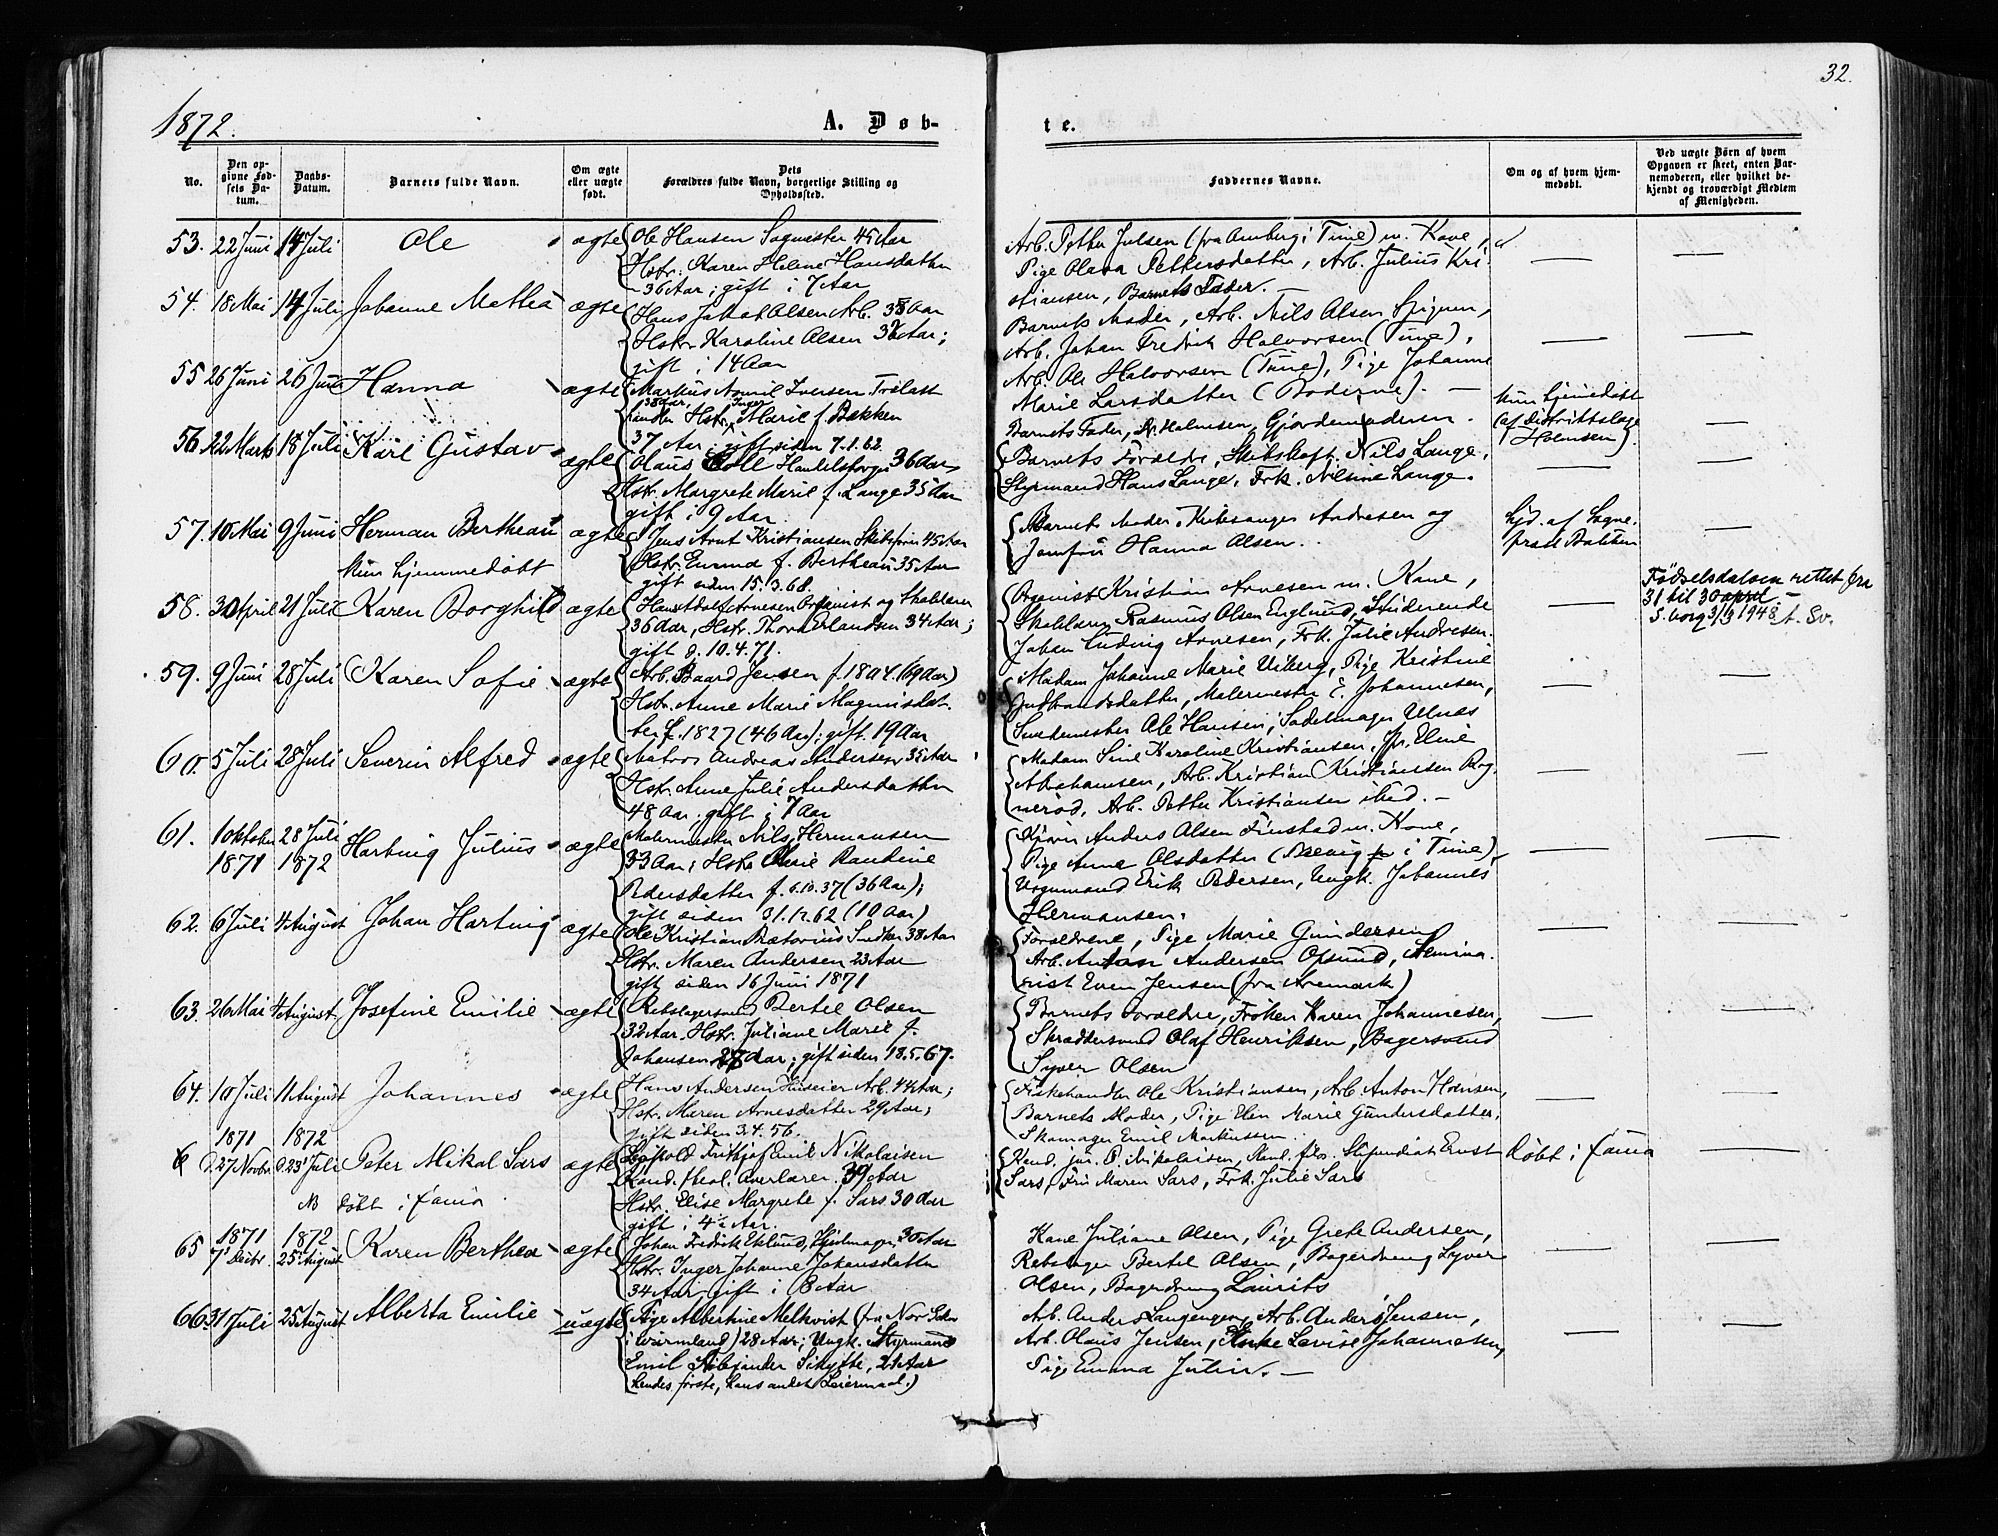 32.
1872.
A. Døb-
te.
No.
Den op-
givne Fød-
sels Da-
tum.
Daabs-
Datum.
Barnets fulde Navn.
Om ægte
eller uægte
født.
Dets
Forældres fulde Navn, borgerlige Stilling og
Opholdssted.
Faddernes Navne.
Om og af hvem hjem-
medøbt.
Ved uægte Børn af hvem
Opgaven er skeet, enten Bar-
nemoderen, eller hvilket be-
kjendt og troværdigt Medlem
af Menigheden.
53. 22 Juni 14 Juli Ole ægte
Ole Hansen Sagmester 45 Aar
Hstr. Karen Helene Hansdatter
36 Aar; gift i 7 Aar
Arb. Petter Julsen (fra i Tune) m. Kone,
Pige Olava Pettersdatter, Arb. Julius Kri-
stiansen, Barnets Fader. —
54. 18 Mai 14 Juli Johanne Mathea ægte
Hans Jakob Olsen Arb. 35 Aar
Hstr. Karoline Olsen Aar;
gift i 14 Aar
Barnets Moder, Arb. Nils Olsen
Arb. Johan Fredrik Halvorsen (Tune),
Arb. Ole Halvorsen (Tune), Pige Johanne
Marie Larsdatter —
55 26 Juni 26 Juni Hanna ægte
Markus Iversen Trælast
handler 38 Aar, Hstr. Inger Marie f. Bakken
37 Aar; gift siden 7.1.62.
Barnets Fader, Dr. Holmsen, Gjordemoderen.
Kun hjemedøbt
(af Distriktslæge
Holmsen).
56. 22 Marts 18 Juli Karl Gustav ægte
Olaus Handelsborger 36 Aar
Hstr. Margrete Marie f. Lange 35 Aar
gift i 9 Aar.
Barnets Forældre, Skibskapt. Nils Lange,
Styrmand Hans Lange, Frk. Nilsine Lange.
57. 10 Mai 9 Juni Herman Bertheau ægte
Kun hjemmedøbt
Jens Arnt Kristiansen Skibsfører 45 Aar
Hstr. Emma f. Bertheau 35 Aar
gift siden 15.3.68.
Barnets Moder, Kirkesanger Andresen og
Jomfru Hanna Olsen.
Hjd. af Sogne-
præst Bakken
58. 30 April 21 Juli Karen Borghild ægte
Hans Adolf Arnesen Organist og Skolelærer
36 Aar, Hstr. Thora Erlandsen 34 Aar;
gift d. 10.4.71.
Organist Kristian Arnesen m. Kone,
Skolelærer Rasmus Olsen Englund, Studerende
Johan Ludvig Arnesen, Frk. Julie Andresen.
Fødselsdatoen rettet fra
31 til 30 april —
S.borg 31/3 1948 A. Sv.
59. 9 Juni 28 Juli Karen Sofie ægte
Arb. Baard Jensen f. 1804 (69 Aar)
Hstr. Anne Marie Magnusdat-
ter f. 1827 (46 Aar); gift 19 Aar
Madam Johanne Marie Viberg, Pige Kristine
Gulbrandsdatter, Malermester E. Johannesen,
Smedemester Ole Hansen, Sadelmager Ulnæs
60. 5 Juli 28 Juli Severin Alfred ægte
Matros Andreas Andersen 35 Aar
Hstr. Anne Julie Andersdatter
48 Aar. gift i 7 Aar
Madam Sine Karoline Kristiansen, Jfr. Eline
Abrahamsen, Arb. Kristian Kristiansen Rog-
nerød, Arb. Petter Kristiansen ibid. —
61. 1 Oktober 1871 28 Juli 1872 Hartvig Julius ægte
Malermester Nils Hermansen
33 Aar; Hstr. Olave Randine
Pedersdatter f. 6.10.37 (36 Aar);
gift siden 31.12.62 (10 Aar)
Anders Olsen Finstad m. Kone,
Pige Anne Olsdatter ( i Tune),
Vognmand Erik Pedersen, Ungk. Johannes
Hermansen.
62. 6 Juli 4 August Johan Hartvig ægte
Ole Kristian Prætorius Snedker 38 Aar
Hstr. Maren Andersen 23 Aar
gift siden 16 Juni 1871
Forældrene, Pige Marie Gundersen
Arb. Anton Andersen Opsund, Semina-
rist Even Jensen (fra Aremark)
63. 26 Mai 4 August Josefine Emilie ægte
Rebslagersvend Bertil Olsen
32 Aar. Hstr. Juliane Marie f.
Johansen 27 Aar; gift siden 18.5.67.
Barnets Forældre, Frøken Karen Johannesen,
Skræddersvend Olaf Henriksen, Bagersvend
Syver Olsen
64. 10 Juli 11 August Johannes ægte
Hans Andersen Huseier Arb. 44 Aar;
Hstr. Maren Arnesdatter 29 Aar;
gift siden 3.4.56.
Fiskehandler Ole Kristiansen, Arb. Anton Hansen,
Barnets Moder, Pige Elen Marie Gundersdatter,
Skomager Emil Markussen.
1871 1872
27 Novbr. 23 Juli Peter Mikal Sars ægte
NB døbt i Fana
Leopold Frithjof Emil Nikolaisen
Kand. theol. Overlærer. 39 Aar
Hstr. Elise Margrete f. Sars 30 Aar
gift i 4½ Aar.
Kand. jur. P. Nikolaisen, Kand. filos. Stipendiat Ernst
Sars, Fru Maren Sars, Frk. Julie Sars
Døbt i Fana
65 1871 7 Decbr. 1872 25 August Karen Berthea ægte
Johan Fredrik Eklund, Hjulmager, 30 Aar
Hstr. Inger Johanne Johansdatter
34 Aar; gift i 8 Aar
Kone Juliane Olsen, Pige Grete Andersen,
Rebslager Bertel Olsen, Bagerdreng Syver
Olsen, Bagerdreng Laurits
66 31 Juli 25 August Alberta Emilie uægte
Pige Albertine Melkvist (fra Nor Sokn
i Wärmland) 28 Aar; Ungk. Styrmand
Emil Alexander Schytte, 21 Aar
(hendes første, hans andet Leiermaal.)
Arb. Anders Langengen, Arb. Anders Jensen,
Arb. Olaus Jensen, Enke Lovise Johannesen,
Pige Emma Julin. —